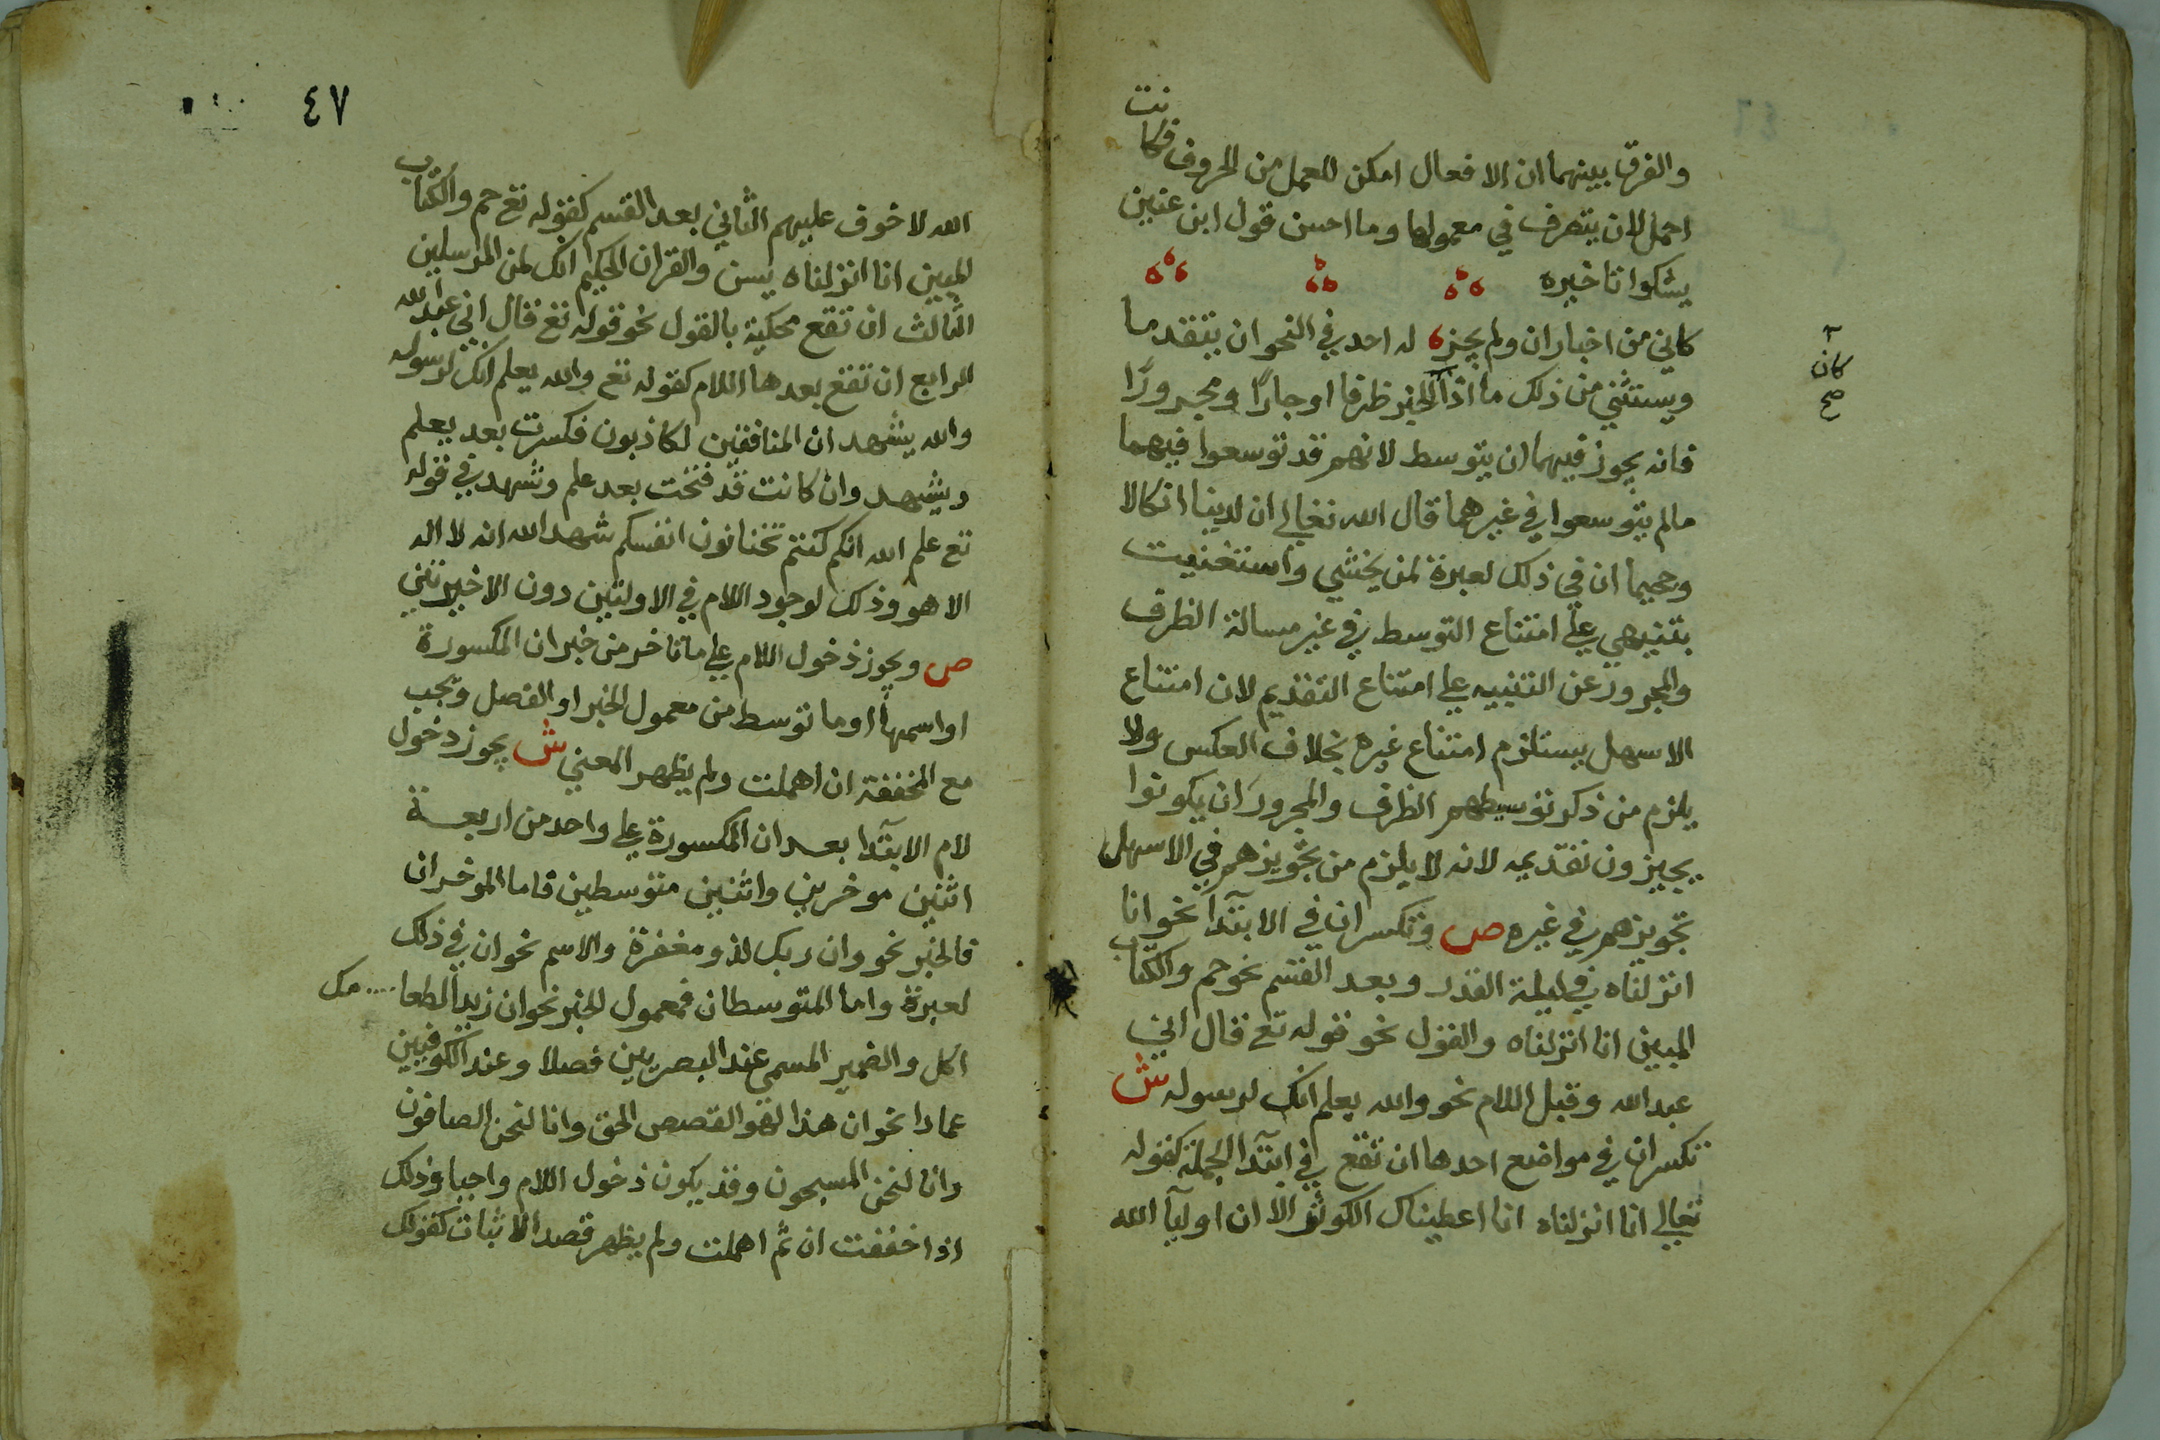 والفرق بينهما ان الافعال امكن للعمل من الحروف فكانت
احمل لان يتصرف في معمولها وما احسن قول ابن عنين
يشكوا تاخيره
كاني من اخبار ان ولم يجز له احد في النحو ان يتقدما
ويستثني من ذلك ما اذا الخبر ظرفا او جارًا ومجرورًا
كان
صح
فانه يجوز فيهما ان يتوسط لانهم قد توسعوا فيهما
مالم يتوسعوا في غيرهما قال الله تعالي ان لدينا انكالا
وجحيما ان في ذلك لعبرة لمن يخشي واستغنيت
بتنبيهي علي امتناع التوسط في غير مسالة الظرف
والمجرور عن التنبيه علي امتناع التقديم لان امتناع
الاسهل يستلزم امتناع غيره بخلاف العكس ولا
يلزم من ذكر توسيطهم الظرف والمجرور ان يكونوا
يجيزون تقديمه لانه لا يلزم من تجويزهم في الاسهل
تجويزهم في غيره ص وتكسر ان في الابتدآ نحو انا
انزلناه في ليلة القدر وبعد القسم نحو حم والكتاب
المبين انا انزلناه والقول نحو قوله تع قال اني
عبد الله وقبل اللام نحو والله يعلم انك لرسوله ش
تكسر ان في مواضع احدها ان تقع في ابتدآ الجملة كقوله
تعالي انا انزلناه انا اعطيناك الكوثر الا ان اوليآ الله
٤٧
الله لا خوف عليهم الثاني بعد القسم كقوله تع حم والكتاب
المبين انا انزلناه يسن والقران الحكيم انك لمن المرسلين
الثالث ان تقع محكية بالقول نحو قوله تع قال اني عبد الله
الرابع ان تقع بعدها اللام كقوله تع والله يعلم انك لرسوله
والله يشهد ان المنافقين لكاذبون فكسرت بعد يعلم
ويشهد وان كانت قد فتحت بعد علم وشهد في قوله
تع علم الله انكم كنتم تختانون انفسكم شهد الله انه لا اله
الا هو وذلك لوجود اللام في الاولتين دون الاخيرتين
ص ويجوز دخول اللام علي ما تاخر من خبر ان المكسورة
او اسمها او ما توسط من معمول الخبر او الفصل ويجب
مع المخففة ان اهملت ولم يظهر المعني ش يجوز دخول
لام الابتدآ بعد ان المكسورة علي واحد من اربعة
اثنين موخرين واثنين متوسطين فاما الموخران
فالخبر نحو وان ربك لذو مغفرة والاسم نحو ان في ذلك
لعبرة واما المتوسطان فمعمول الخبر نحو ان زيدا لطعامك
اكل والضمير المسمي عند البصريين فصلا وعند الكوفيين
عمادا نحو ان هذا لهو القصص الحق وانا لنحن الصافون
وانا لنحن المسبحون وقد يكون دخول اللام واجبا وذلك
اذا خففت ان ثم اهملت ولم يظهر قصد الاثبات كقولك